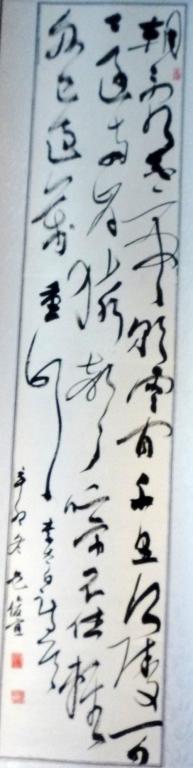 朝辞白帝彩雲间千里江陵一日
还两岸猿声啼不住轻
舟已过萬重山 李太白诗
辛卯冬